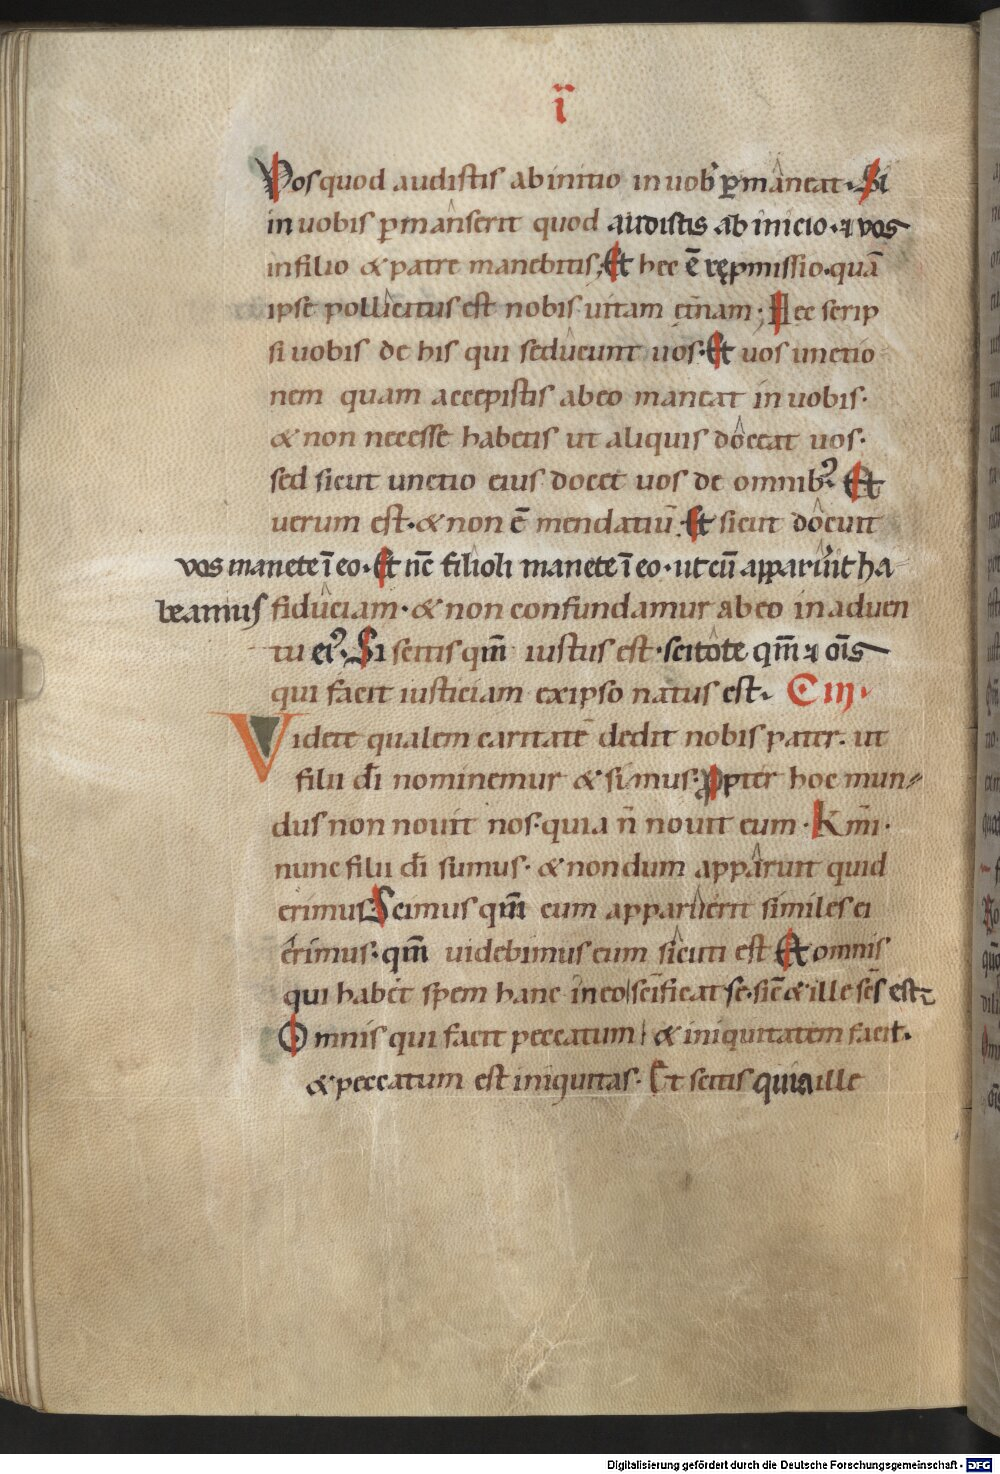 ï
Vos quod audistis ab initio in uob̉ ꝑmâneat. Si
in uobis ꝑmânserit quod audistis ab inicio. ⁊ vos
in filio & patre manebitis; Et hec ē rępmissio. quā
ipse pollicitus est nobis uitam ęt̄nam; Hec scrip
si uobis de his qui sedûcunt uos. Et vos unctio
nem quam accepistis ab eo maneat in uobis.
& non necesse habetis ut aliquis dôceat uos.
sed sicut unctio eius docet uos de omnibꝰ. Et
uerum est. & non ē mendatiū. Et sicut dôcuit
vos manete ī eo. Et nc̄ filîoli manete ī eo. ut cū apparûit ha
beamus fidûciam. & non confundamur ab eo in aduen
tu eiꝰ. Si scitis qm̄ iustus est. scitôte qm̄ ⁊ oīs
qui facit iusticiam ex ipso natus est. C iij.
Videte qualem caritatē dedit nobis pater. ut
filii dī nominemur & simus. ꝓpter hoc mun
dus non nouit nos. quia n̄ nouit eum. Km̄i.
nunc filii dī sumus. & nondum appâruit quid
erimus. Scimus qm̄ cum apparûerit similes ei
érimus. qm̄ uidebimus eum sîcuti est Et omnis
qui habet spem hanc in eo scīficat se. sic̄ & ille sc̄s est
Omnis qui facit peccatum & iniquitatem facit.
& peccatum est iniquitas. Et scitis quia ille
Digitalisierung gefördert durch die Deutsche Forschungsgemeinschaft - DFG